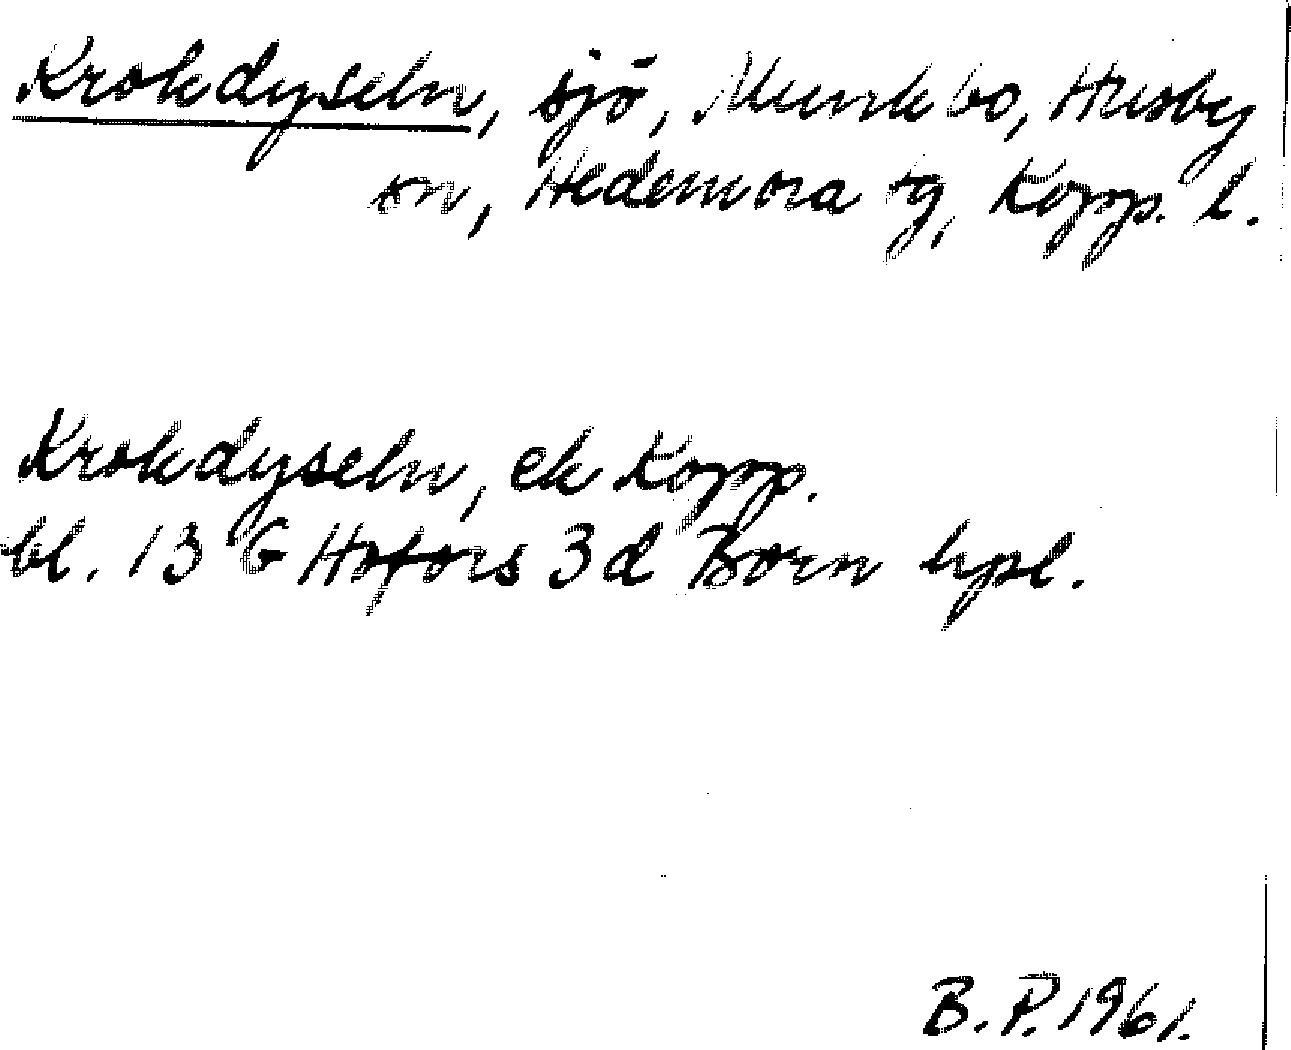 Krokdyseln, sjö, Munkbo, Husby
sn, Hedemora tg, Kopp. l.
Krokdyseln, ek Kopp.
bl. 13 G Hofors 3 d Born hpl.
B. P. 1961.